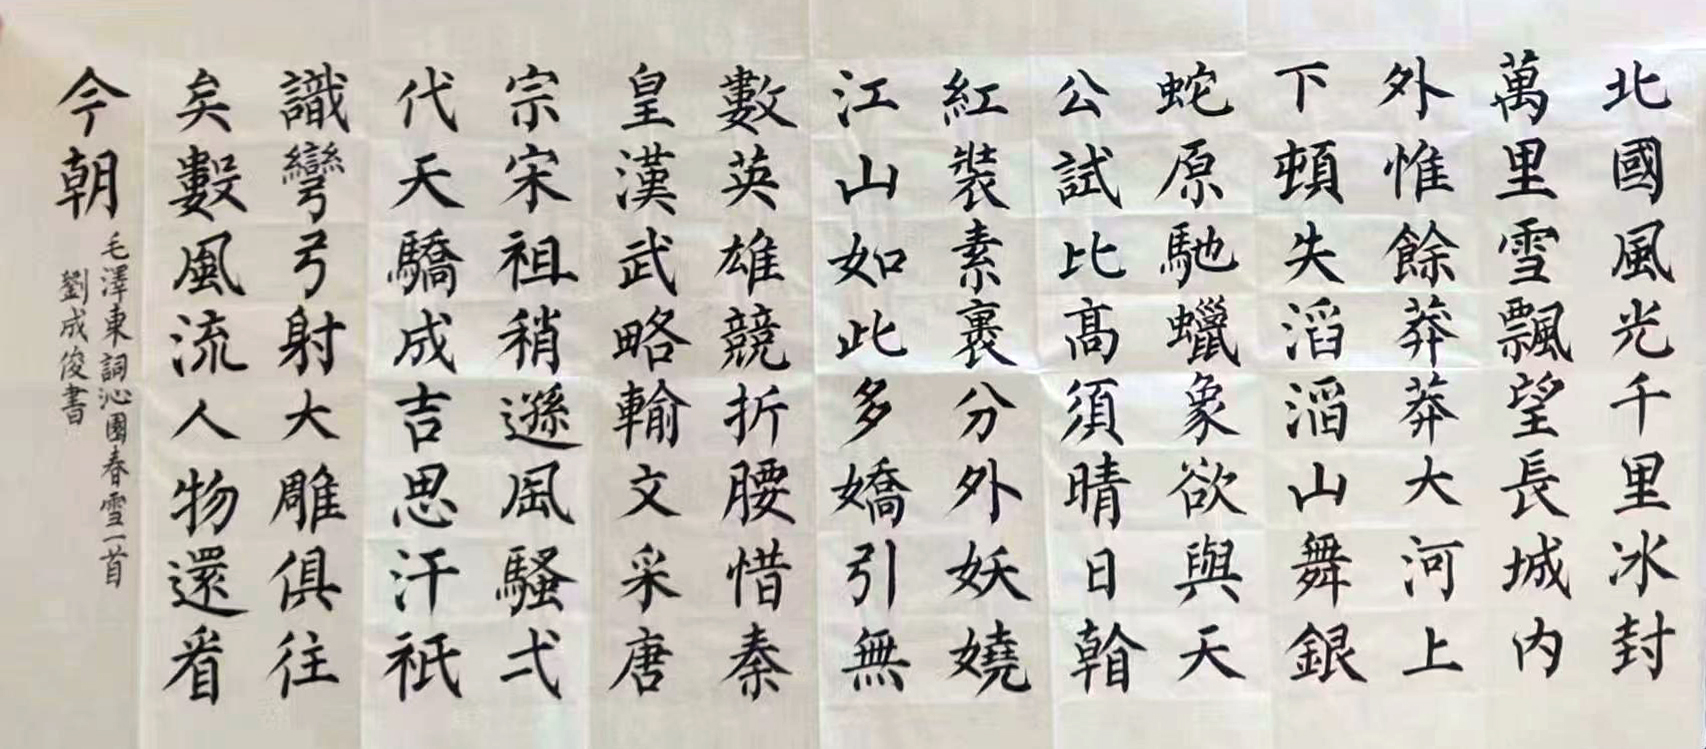 北國風光千里冰封
萬里雪飄望長城内
外惟餘莽莽大河上
下頓失滔滔山舞銀
蛇原馳蠟象欲與天
公試比髙須晴日
紅裝素裹分外妖嬈
江山如此多嬌引無
數英雄競折腰惜秦
皇漢武略輸文采唐
宗宋祖稍遜風騷弌
代天驕成吉思汗祇
識彎弓射大雕俱往
矣數風流人物還看
今朝
毛澤東詞沁園春雪一首
劉成俊書